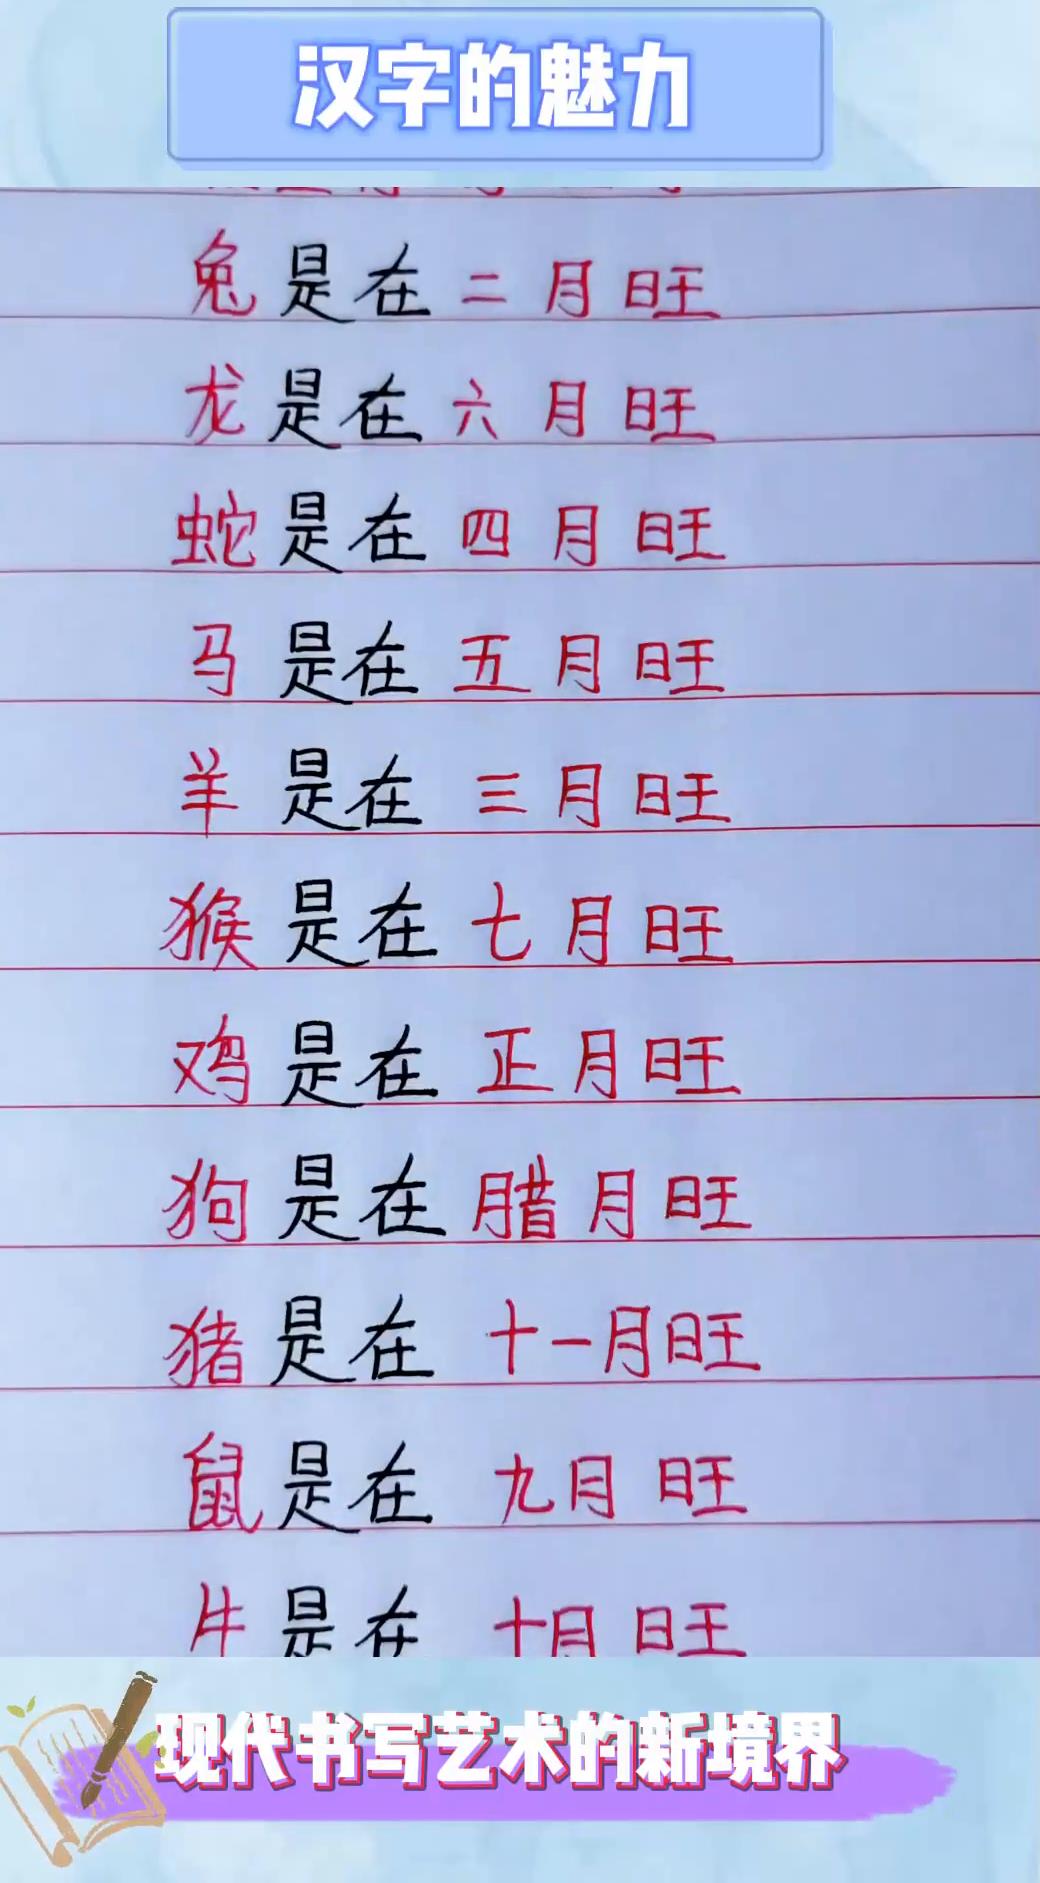 汉字的魅力
兔是在二月旺
龙是在六月旺
蛇是在四月旺
马是在五月旺
羊是在三月旺
猴是在七月旺
鸡是在正月旺
狗是在腊月旺
猪是在十一月旺
鼠是在九月旺
牛是在十月旺
现代书写艺术的新境界